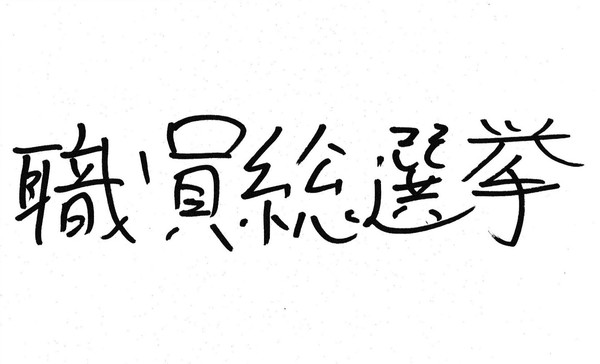 職員総選挙